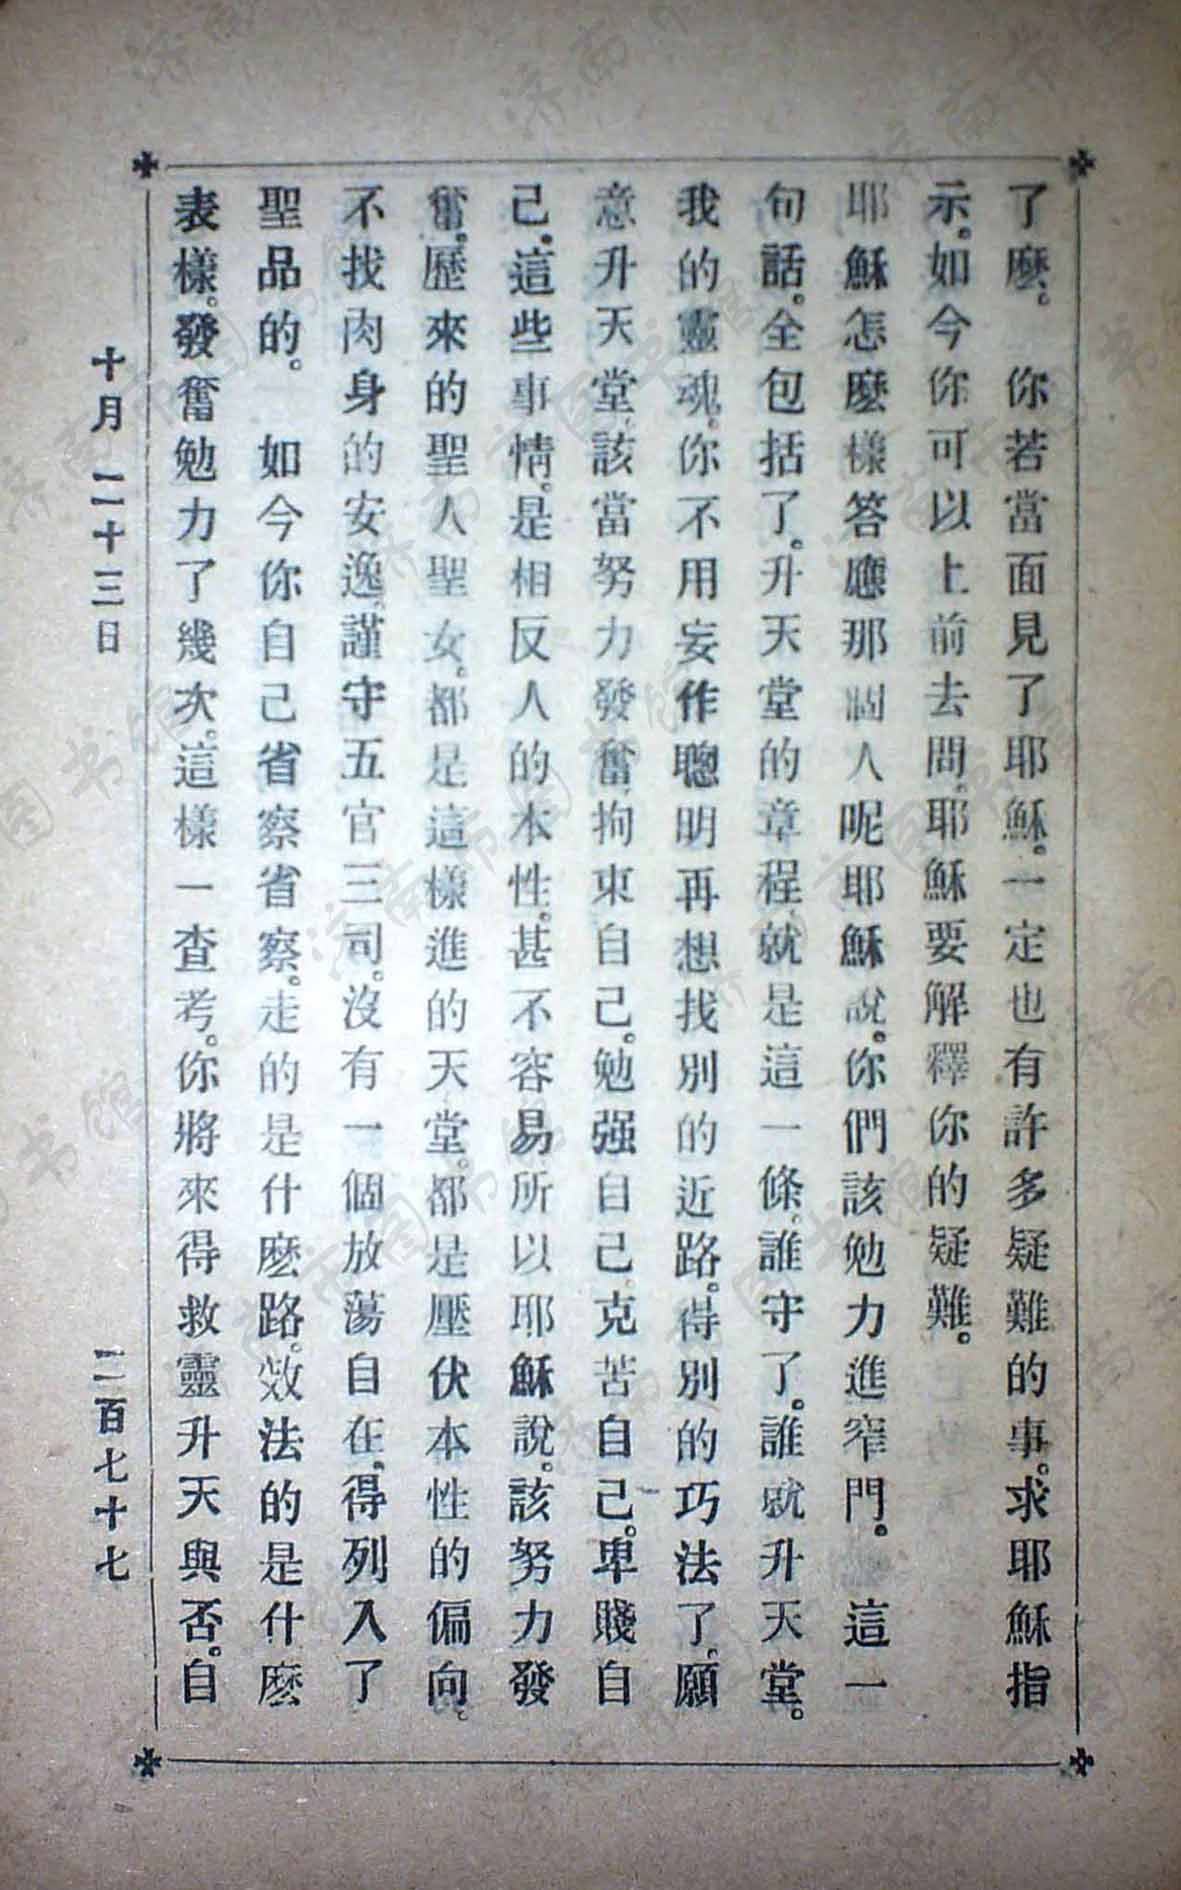 了麽。　你若當面見了耶穌。一定也有許多疑難的事。求耶穌指
示。如今你可以上前去問。耶穌要解釋你的疑難。
耶穌怎麽樣答應那個人呢耶穌說。你們該勉力進窄門。　這一
句話。全包括了。升天堂的章程。就是這一條。誰守了。誰就升天堂。
我的靈魂。你不用妄作聰明再想找別的近路。得別的巧法了。願
意升天堂。該當努力發奮。拘束自己。勉强自己。克苦自己。卑賤自
己。這些事情。是相反人的本性。甚不容易所以耶穌說。該努力發
奮。歷來的聖人聖女。都是這樣進的天堂。都是壓伏本性的偏向。
不找肉身的安逸。謹守五官三司。沒有一個放蕩自在。得列入了
聖品的。　如今你自己省察省察。走的是什麽路。效法的是什麽
表樣。發奮勉力了幾次。這樣一查考。你將來得救靈升天與否。自
十月二十三日　二百七十七
济南市图书馆